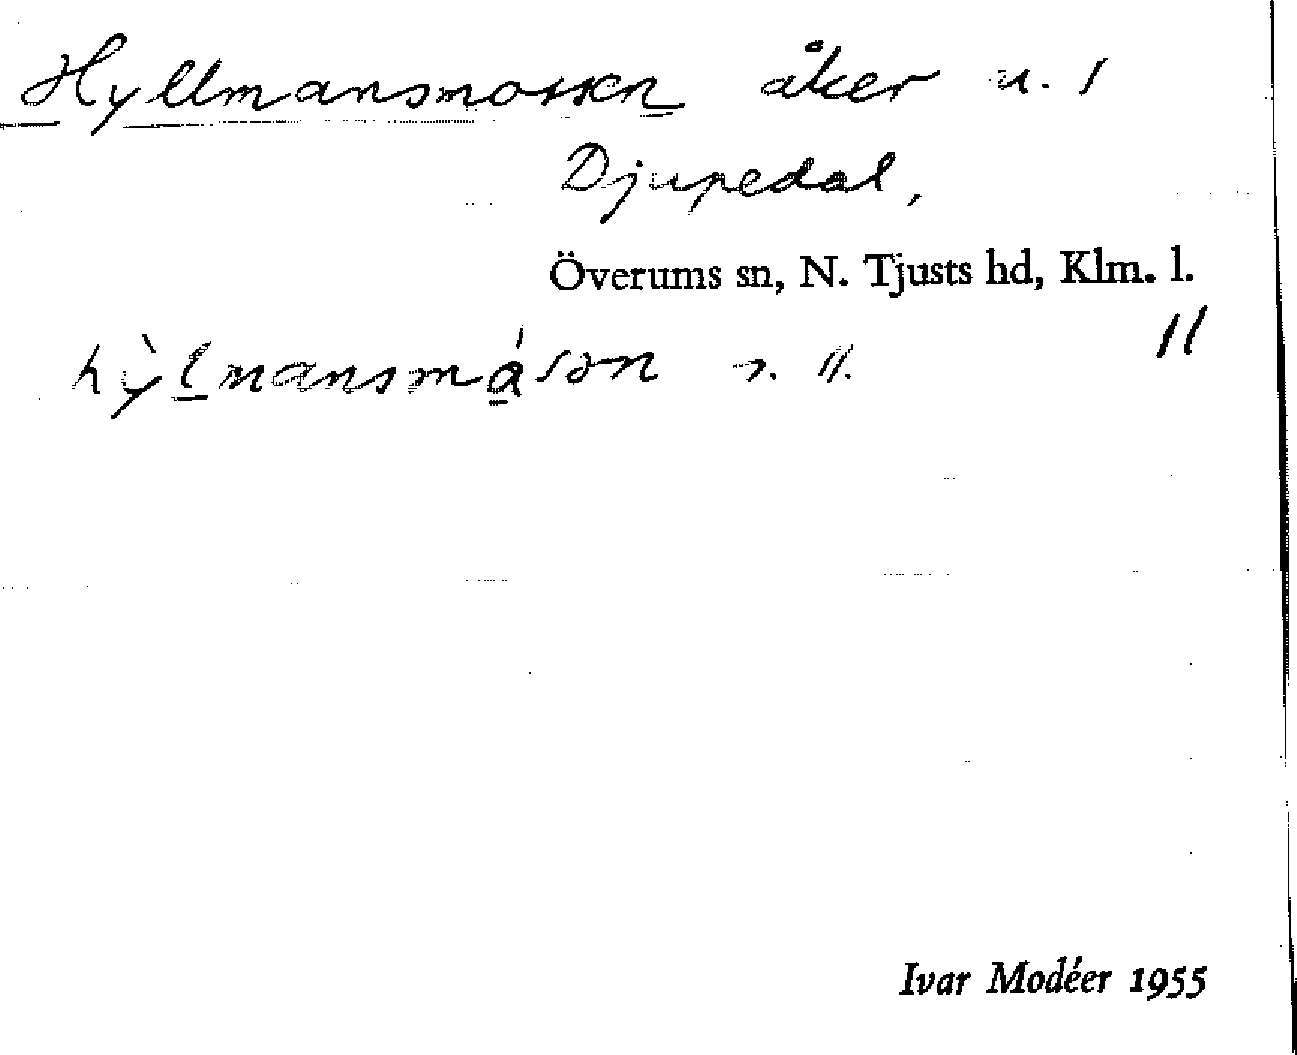 Hyllmansmossen åker n. 1
Djupedal,
Överums sn, N. Tjusts hd, Klm. l.
11
hỳlmansmåsən
Ivar Modéer 1955